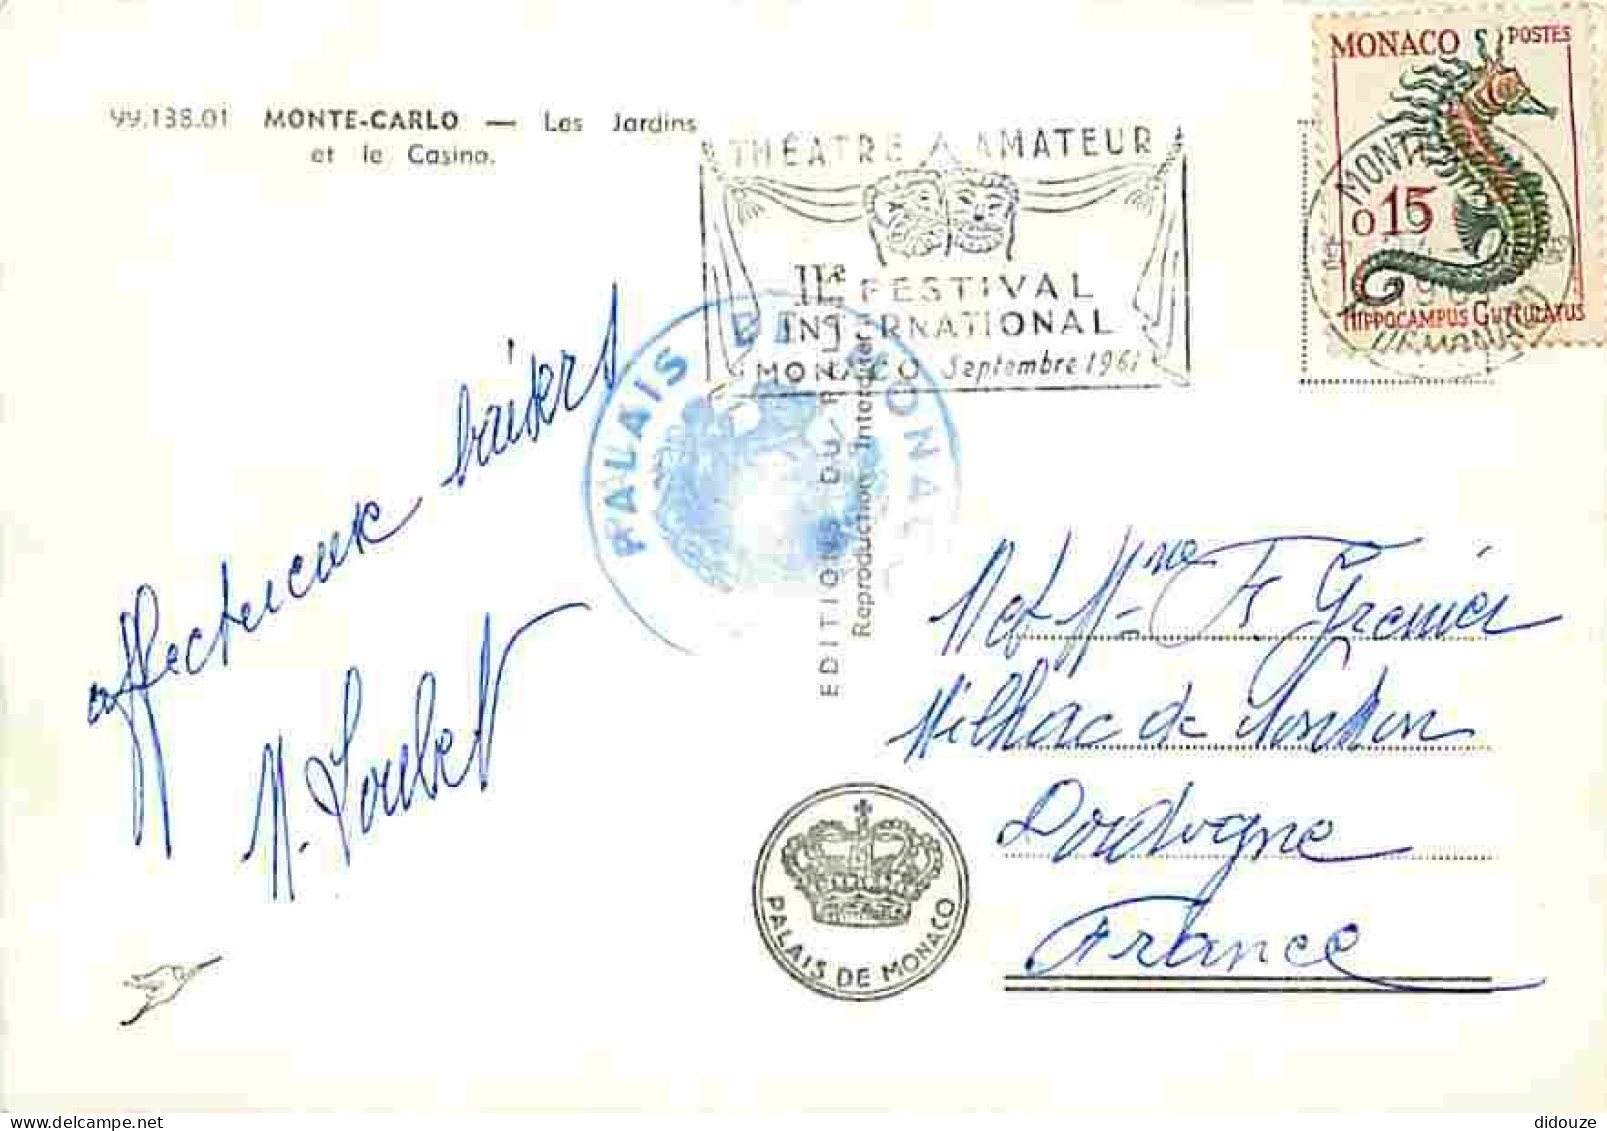 99.138.01 MONTE-CARLO — Les Jardins
et le Casino.
THÉATRE AMATEUR
IIe FESTIVAL
INTERNATIONAL
MONACO Septembre 1961
MONACO POSTES
0 15
HIPPOCAMPUS GUTTULATUS
MONTE
PALAIS DE MONACO
EDITIONS DU
Reproduction Interdite
affectueux baisers
M. Joubert
M et Mme F Grenier
Milhac de Nontron
Dordogne
France
PALAIS DE MONACO
didouze